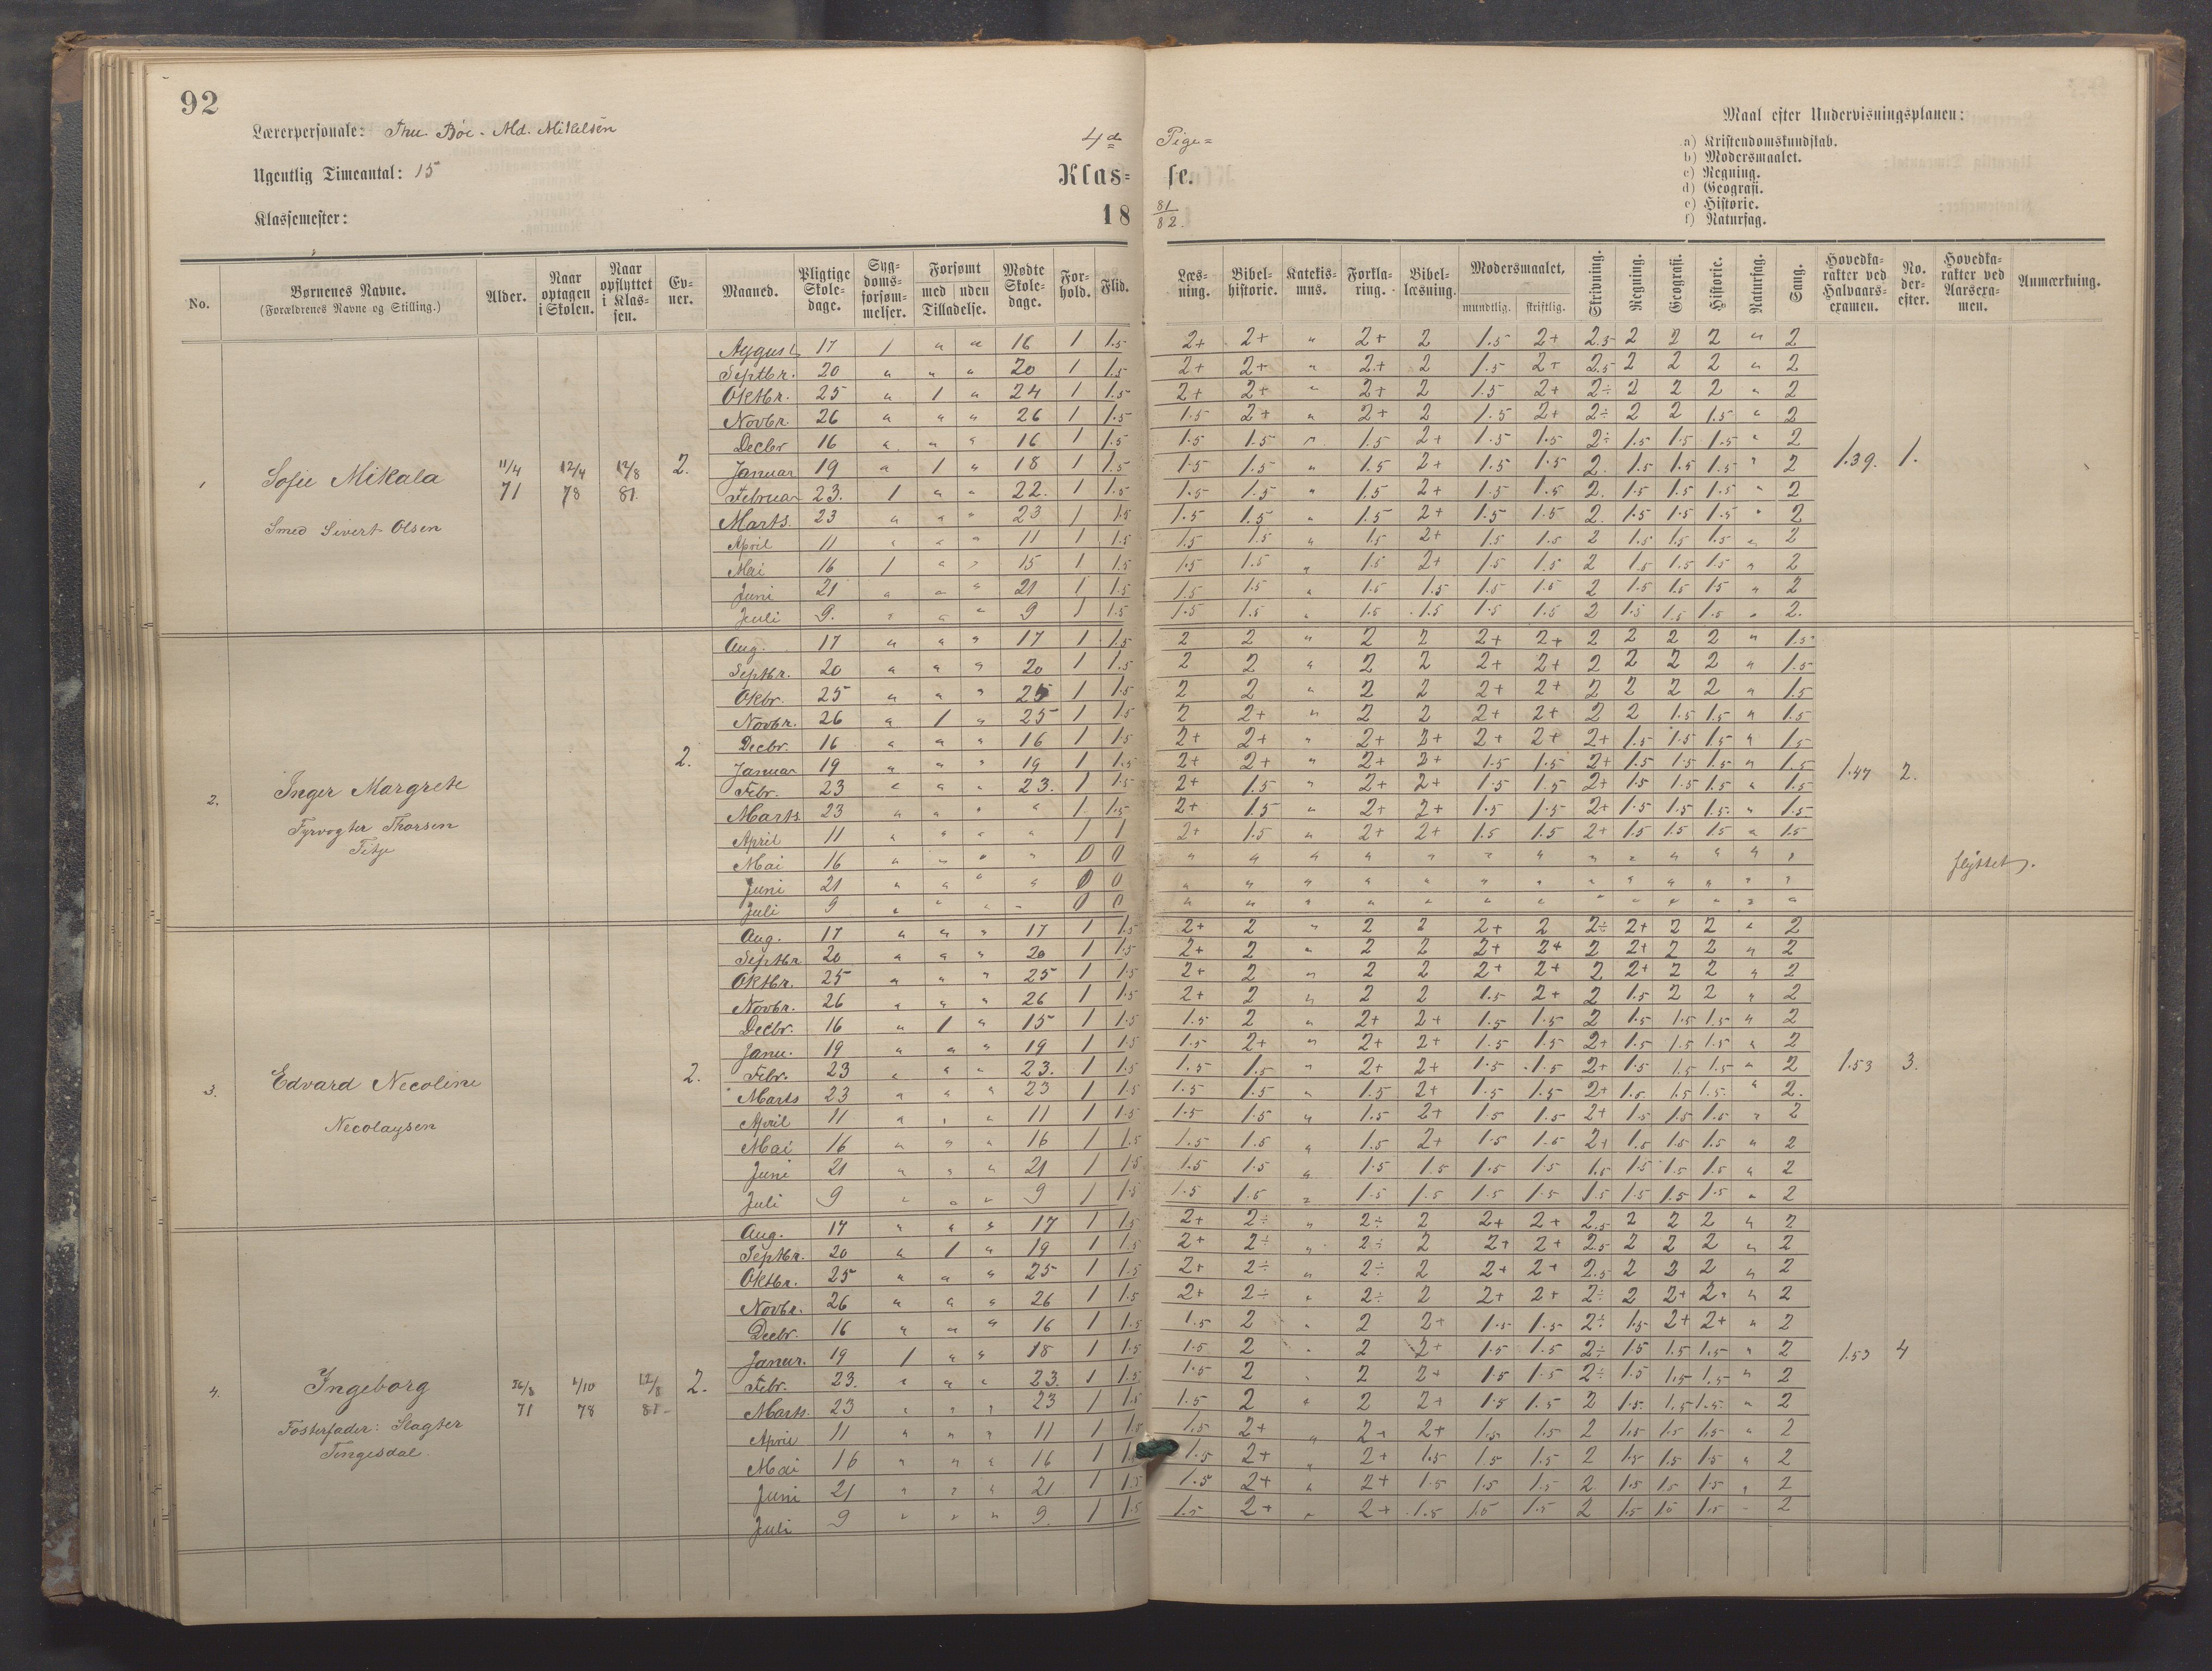 92
Lærerpersonale: Thu. Böe. Md. Mikelsen
Ugentlig Timeantal: 15
Klassemester:
4de Pige=
Klas= se.
18 81/82.
Maal efter Undervisningsplanen:
a) Kristendomskundskab.
b) Modersmaalet.
c) Regning.
d) Geografi.
e) Historie.
f) Naturfag.
No. | Børnenes Navne. (Forældrenes Navne og Stilling.) | Alder. | Naar optagen i Skolen. | Naar opflyttet i Klassen. | Evner. | Maaned. | Pligtige Skoledage. | Sygdomsforsømmelser. | Forsømt med uden Tilladelse. | Mødte Skoledage. | Forhold. | Flid. | Læsning. | Bibelhistorie. | Katekismus. | Forklaring. | Bibellæsning. | Modersmaalet, mundtlig. skriftlig. | Skrivning. | Regning. | Geografi. | Historie. | Naturfag. | Sang. | Hovedkarakter ved Halvaarsexamen. | No. derefter. | Hovedkarakter ved Aarsexamen. | Anmærkning.
1 Sofie Mikala
Smed Sivert Olsen
11/4 71 12/4 78 12/8 81. 2. 1.39. 1.
August 17 1 " " 16 1 1.5 2+ 2+ " 2+ 2 1.5 2+ 2.5 2 2 2 " 2
Septbr. 20 " " " 20 1 1.5 2+ 2+ " 2+ 2 1.5 2+ 2.5 2 2 2 " 2
Oktbr. 25 " 1 " 24 1 1.5 2+ 2+ " 2+ 2 1.5 2+ 2÷ 2 2 2 " 2
Novbr. 26 " " " 26 1 1.5 1.5 2+ " 2+ 2 1.5 2+ 2÷ 2 2 1.5 " 2
Decbr 16 " " " 16 1 1.5 1.5 1.5 " 1.5 2+ 1.5 1.5 2÷ 1.5 1.5 1.5 " 2
Januar 19 " 1 " 18 1 1.5 1.5 1.5 " 1.5 2+ 1.5 1.5 2. 1.5 1.5 1.5 " 2
Februar 23. 1 " " 22. 1 1.5 1.5 1.5 " 1.5 2+ 1.5 1.5 2. 1.5 1.5 1.5 " 2
Marts. 23 " " " 23 1 1.5 1.5 1.5 " 1.5 2+ 1.5 1.5 2. 1.5 1.5 1.5 " 2
April 11 " " " 11 1 1.5 1.5 1.5 " 1.5 2+ 1.5 1.5 2 1.5 1.5 1.5 " 2
Mai 16 1 " " 15 1 1.5 1.5 1.5 " 1.5 2+ 1.5 1.5 2 1.5 1.5 1.5 " 2
Juni 21 " " " 21 1 1.5 1.5 1.5 " 1.5 1.5 1.5 1.5 2 1.5 1.5 15 " 2
Juli 9. " " " 9 1 1.5 1.5 1.5 " 1.5 1.5 1.5 1.5 2 1.5 1.5 1.5 " 2.
2. Inger Margrete
Fyrvogter Thorsen
2. 1.47 2. flyttet.
Aug. 17 " " " 17 1 1.5 2 2 " 2 2 2+ 2+ 2 2 2 2 " 1.5
Septbr. 20 " " " 20 1 1.5 2 2 " 2 2 2+ 2+ 2 2 2 2 " 1.5
Okbr. 25 " " " 25 1 1.5 2 2 " 2 2 2+ 2+ 2 2 2 2 " 1.5
Novbr. 26 " 1 " 25 1 1.5 2 2+ " 2 2 2+ 2+ 2 2 1.5 1.5 " 1.5
Decbr. 16 " " " 16 1 1.5 2+ 2+ " 2+ 2+ 2+ 2+ 2+ 1.5 1.5 1.5 " 1.5
Januar 19 " " " 19 1 1.5 2+ 2+ " 2+ 2+ 1.5 1.5 2+ 1.5 1.5 1.5 " 1.5
Febr. 23 " " " 23. 1 1.5 2+ 1.5 " 2+ 2+ 1.5 1.5 2+ 1.5 1.5 1.5 " 1.5
Marts 23 " " " " 1 1.5 2+ 1.5 " 2+ 2+ 1.5 1.5 2+ 1.5 1.5 1.5 " 1.5
April 11 " " " " 1 1 2+ 1.5 " 2+ 2+ 1.5 1.5 2+ 1.5 1.5 1.5 " 1.5
Mai 16 " " " " 0 0 " " " " " " " " " " " " "
Juni 21 " " " " 0 0 " " " " " " " " " " " " "
Juli 9 " " " - 0 0 " " " " " " " " " " " " "
3. Edvard Necoline
Necolaysen
2. 1.53 3.
Aug. 17 " " " 17 1 1.5 2+ 2 " 2 2 2+ 2 2÷ 2+ 2 2 " 2
Septbr 20 " " " 20 1 1.5 2+ 2 " 2 2 2+ 2+ 2 2+ 2 2 " 2
Oktbr. 25 " " " 25 1 1.5 2+ 2 " 2 2 2+ 2+ 2 2+ 2 2 " 2
Novbr. 26 " " " 26 1 1.5 2+ 2 " 2 2 1.5 2+ 2 1.5 2 2 " 2
Decbr. 16 " 1 " 15 1 1.5 1.5 2 " 2+ 2+ 1.5 1.5 2 1.5 1.5 1.5 " 2
Janu. 19 " " " 19 1 1.5 1.5 2+ " 2+ 2+ 1.5 1.5 2+ 1.5 1.5 1.5 " 2
Febr. 23 " " " 23. 1 1.5 1.5 1.5 " 2+ 2+ 1.5 1.5 2+ 1.5 1.5 1.5 " 2
Marts 23 " " " 23 1 1.5 1.5 1.5 " 1.5 2+ 1.5 1.5 2+ 1.5 1.5 1.5. " 2.
April 11 " " " 11 1 1.5 1.5 1.5 " 1.5 2+ 1.5 1.5 2+ 1.5 1.5 1.5 " 2
Mai 16 " " " 16 1 1.5 1.5 1.5 " 1.5 2+ 1.5 1.5 2+ 1.5 1.5 1.5 " 2
Juni 21 " " " 21 1 1.5 1.5 1.5 " 1.5 1.5 1.5 1.5 1.5 1.5 1.5 1.5 " 2
Juli 9 " " " 9 1 1.5 1.5 1.5 " 1.5 1.5 1.5 1.5 1.5 1.5 1.5 1.5 " 2
4. Ingeborg
Fosterfader: Slagter
Tengesdal.
71 78 12/8 81- 2. 1.53 4
Aug. 17 " " " 17 1 1.5 2+ 2÷ " 2÷ 2 2+ 2+ 2.5 2 2 2 " 2
Septbr. 20 " 1 " 19 1 1.5 2+ 2÷ " 2÷ 2 2+ 2+ 2.5 2 2 2 " 2
Oktbr. 25 " " " 25 1 1.5 2+ 2÷ " 2÷ 2 2+ 2+ 2.5 2 2 2 " 2
Novbr. 26 " " " 26 1 1.5 2+ 2÷ " 2÷ 2 2+ 2+ 2÷ 2 2+ 2+ " 2
Decbr. 16 " " " 16 1 1.5 1.5 2 " 2 2+ 1.5 1.5 2÷ 1.5 2+ 2+ " 2
Januar. 19 1 " " 18 1 1.5 1.5 2 " 2 2+ 1.5 1.5 2÷ 1.5 1.5 1.5 " 2
Febr. 23. " " " 23. 1 1.5 1.5 2 " 2 2+ 1.5 1.5 2÷ 1.5 1.5 1.5 " 2
Marts. 23 " " " 23 1 1.5 1.5 2 " 2 2+ 1.5 1.5 2 1.5. 1.5 1.5. " 2
April 11 " " " 11 1 1.5 1.5 2+ " 2+ 2+ 1.5 1.5 2 1.5 1.5 1.5 " 2
Mai 16 " " " 16 1 1.5 2+ " 2+ 1.5 1.5 1.5 2 1.5 1.5 1.5 " 2
Juni 21 " " " 21 1 1.5 1.5 2+ " 2+ 1.5 1.5 1.5 2 1.5 1.5 1.5 " 2
Juli 9 " " " 9. 1 1.5 1.5 2+ " 2+ 1.5 1.5 1.5 2 1.5 1.5 1.5 - 2